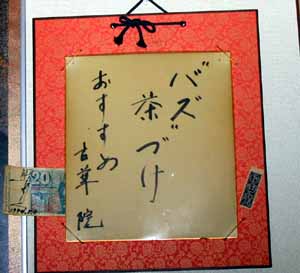 バズ
茶づけ
おすすめ
吉草院
20